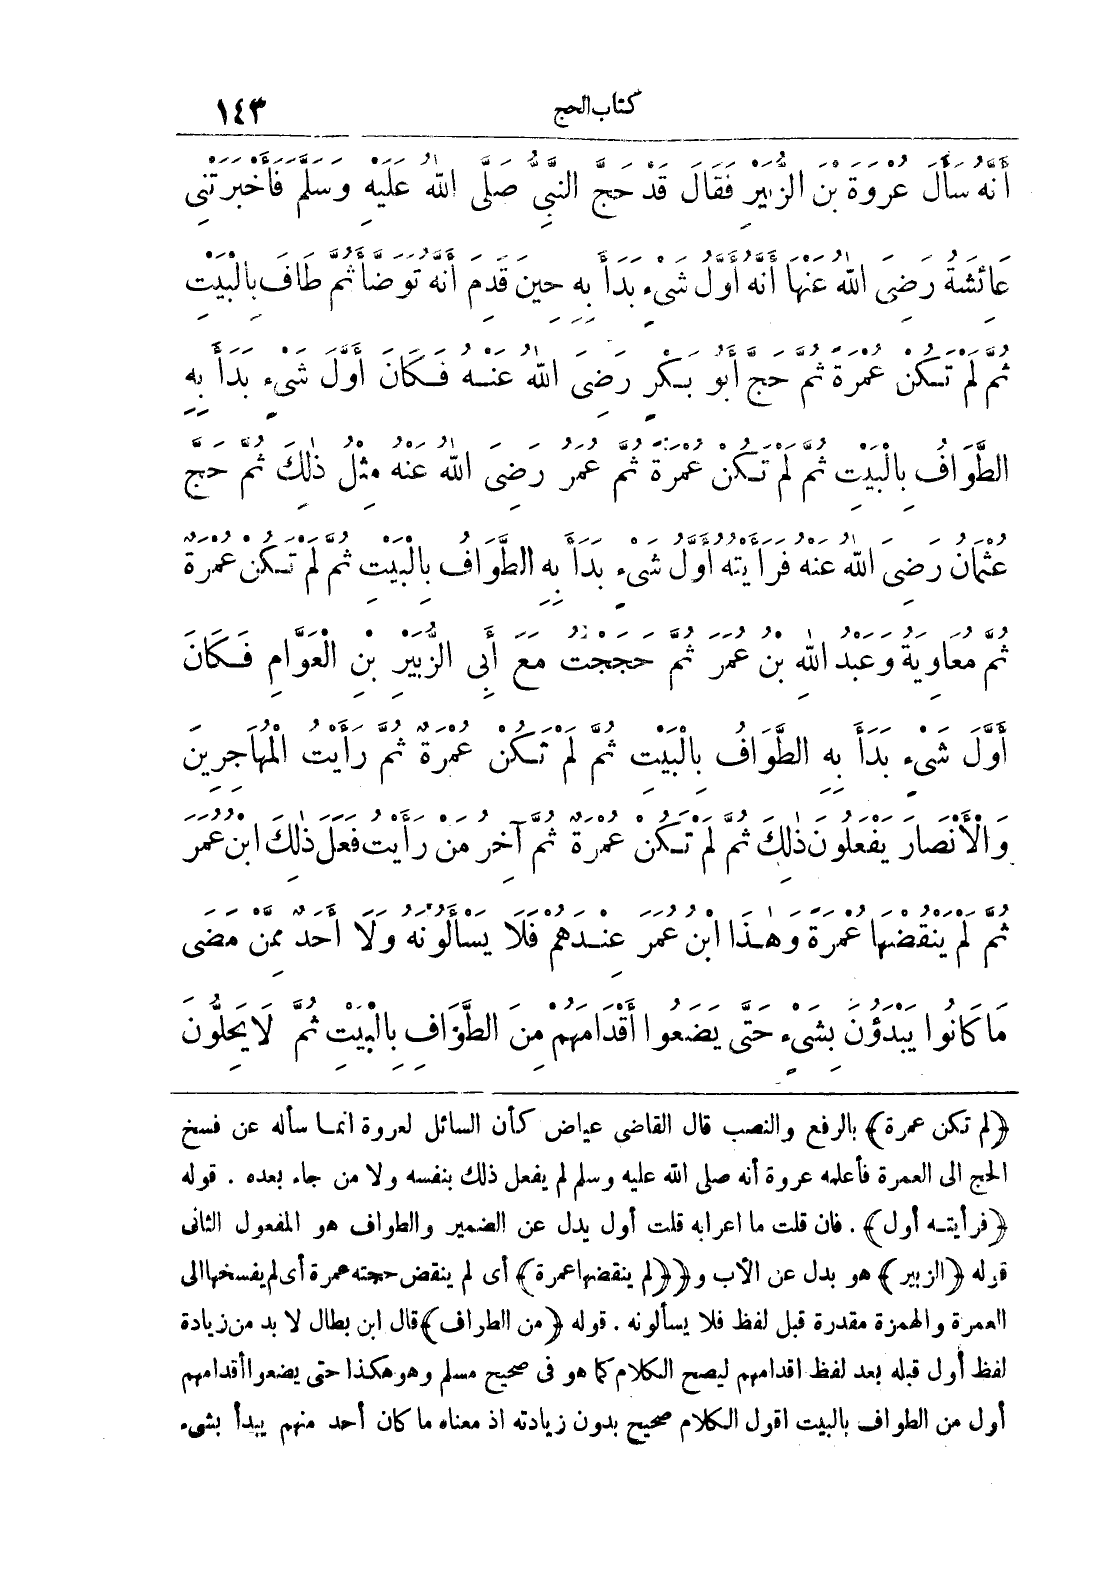 كتاب الحج ١٤٣
أَنَّهُ سَأَلَ عُرْوَةَ بْنَ الزُّبَيْرِ فَقَالَ قَدْ حَجَّ النَّبِيُّ صَلَّى اللهُ عَلَيْهِ وَسَلَّمَ فَأَخْبَرَتْنِي
عَائِشَةُ رَضِيَ اللهُ عَنْهَا أَنَّهُ أَوَّلُ شَيْءٍ بَدَأَ بِهِ حِينَ قَدِمَ أَنَّهُ تَوَضَّأَ ثُمَّ طَافَ بِالْبَيْتِ
ثُمَّ لَمْ تَكُنْ عُمْرَةً ثُمَّ حَجَّ أَبُو بَكْرٍ رَضِيَ اللهُ عَنْهُ فَكَانَ أَوَّلَ شَيْءٍ بَدَأَ بِهِ
الطَّوَافُ بِالْبَيْتِ ثُمَّ لَمْ تَكُنْ عُمْرَةً ثُمَّ عُمَرُ رَضِيَ اللهُ عَنْهُ مِثْلُ ذٰلِكَ ثُمَّ حَجَّ
عُثْمَانُ رَضِيَ اللهُ عَنْهُ فَرَأَيْتُهُ أَوَّلُ شَيْءٍ بَدَأَ بِهِ الطَّوَافُ بِالْبَيْتِ ثُمَّ لَمْ تَكُنْ عُمْرَةٌ
ثُمَّ مُعَاوِيَةُ وَعَبْدُ اللهِ بْنُ عُمَرَ ثُمَّ حَجَجْتُ مَعَ أَبِي الزُّبَيْرِ بْنِ الْعَوَّامِ فَكَانَ
أَوَّلَ شَيْءٍ بَدَأَ بِهِ الطَّوَافُ بِالْبَيْتِ ثُمَّ لَمْ تَكُنْ عُمْرَةٌ ثُمَّ رَأَيْتُ الْمُهَاجِرِينَ
وَالْأَنْصَارَ يَفْعَلُونَ ذٰلِكَ ثُمَّ لَمْ تَكُنْ عُمْرَةٌ ثُمَّ آخِرُ مَنْ رَأَيْتُ فَعَلَ ذٰلِكَ ابْنُ عُمَرَ
ثُمَّ لَمْ يَنْقُضْهَا عُمْرَةً وَهٰذَا ابْنُ عُمَرَ عِنْدَهُمْ فَلَا يَسْأَلُونَهُ وَلَا أَحَدٌ مِمَّنْ مَضَى
مَا كَانُوا يَبْدَؤُنَ بِشَيْءٍ حَتَّى يَضَعُوا أَقْدَامَهُمْ مِنَ الطَّوَافِ بِالْبَيْتِ ثُمَّ لَا يَحِلُّونَ
﴿لم تكن عمرة﴾ بالرفع والنصب قال القاضى عياض كأن السائل لعروة انما سأله عن فسخ
الحج الى العمرة فأعلمه عروة أنه صلى الله عليه وسلم لم يفعل ذلك بنفسه ولا من جاء بعده . قوله
﴿فرأيته أول﴾ . فان قلت ما اعرابه قلت أول بدل عن الضمير والطواف هو المفعول الثانى
قوله ﴿الزبير﴾ هو بدل عن الأب و﴿﴿لم ينقضها عمرة﴾ أى لم ينقض حجته عمرة أى لم يفسخها الى
العمرة والهمزة مقدرة قبل لفظ فلا يسألونه . قوله ﴿من الطواف﴾ قال ابن بطال لا بد من زيادة
لفظ أول قبله بعد لفظ اقدامهم ليصح الكلام كما هو فى صحيح مسلم وهو هكذا حتى يضعوا أقدامهم
أول من الطواف بالبيت اقول الكلام صحيح بدون زيادته اذ معناه ما كان أحد منهم يبدأ بشىء